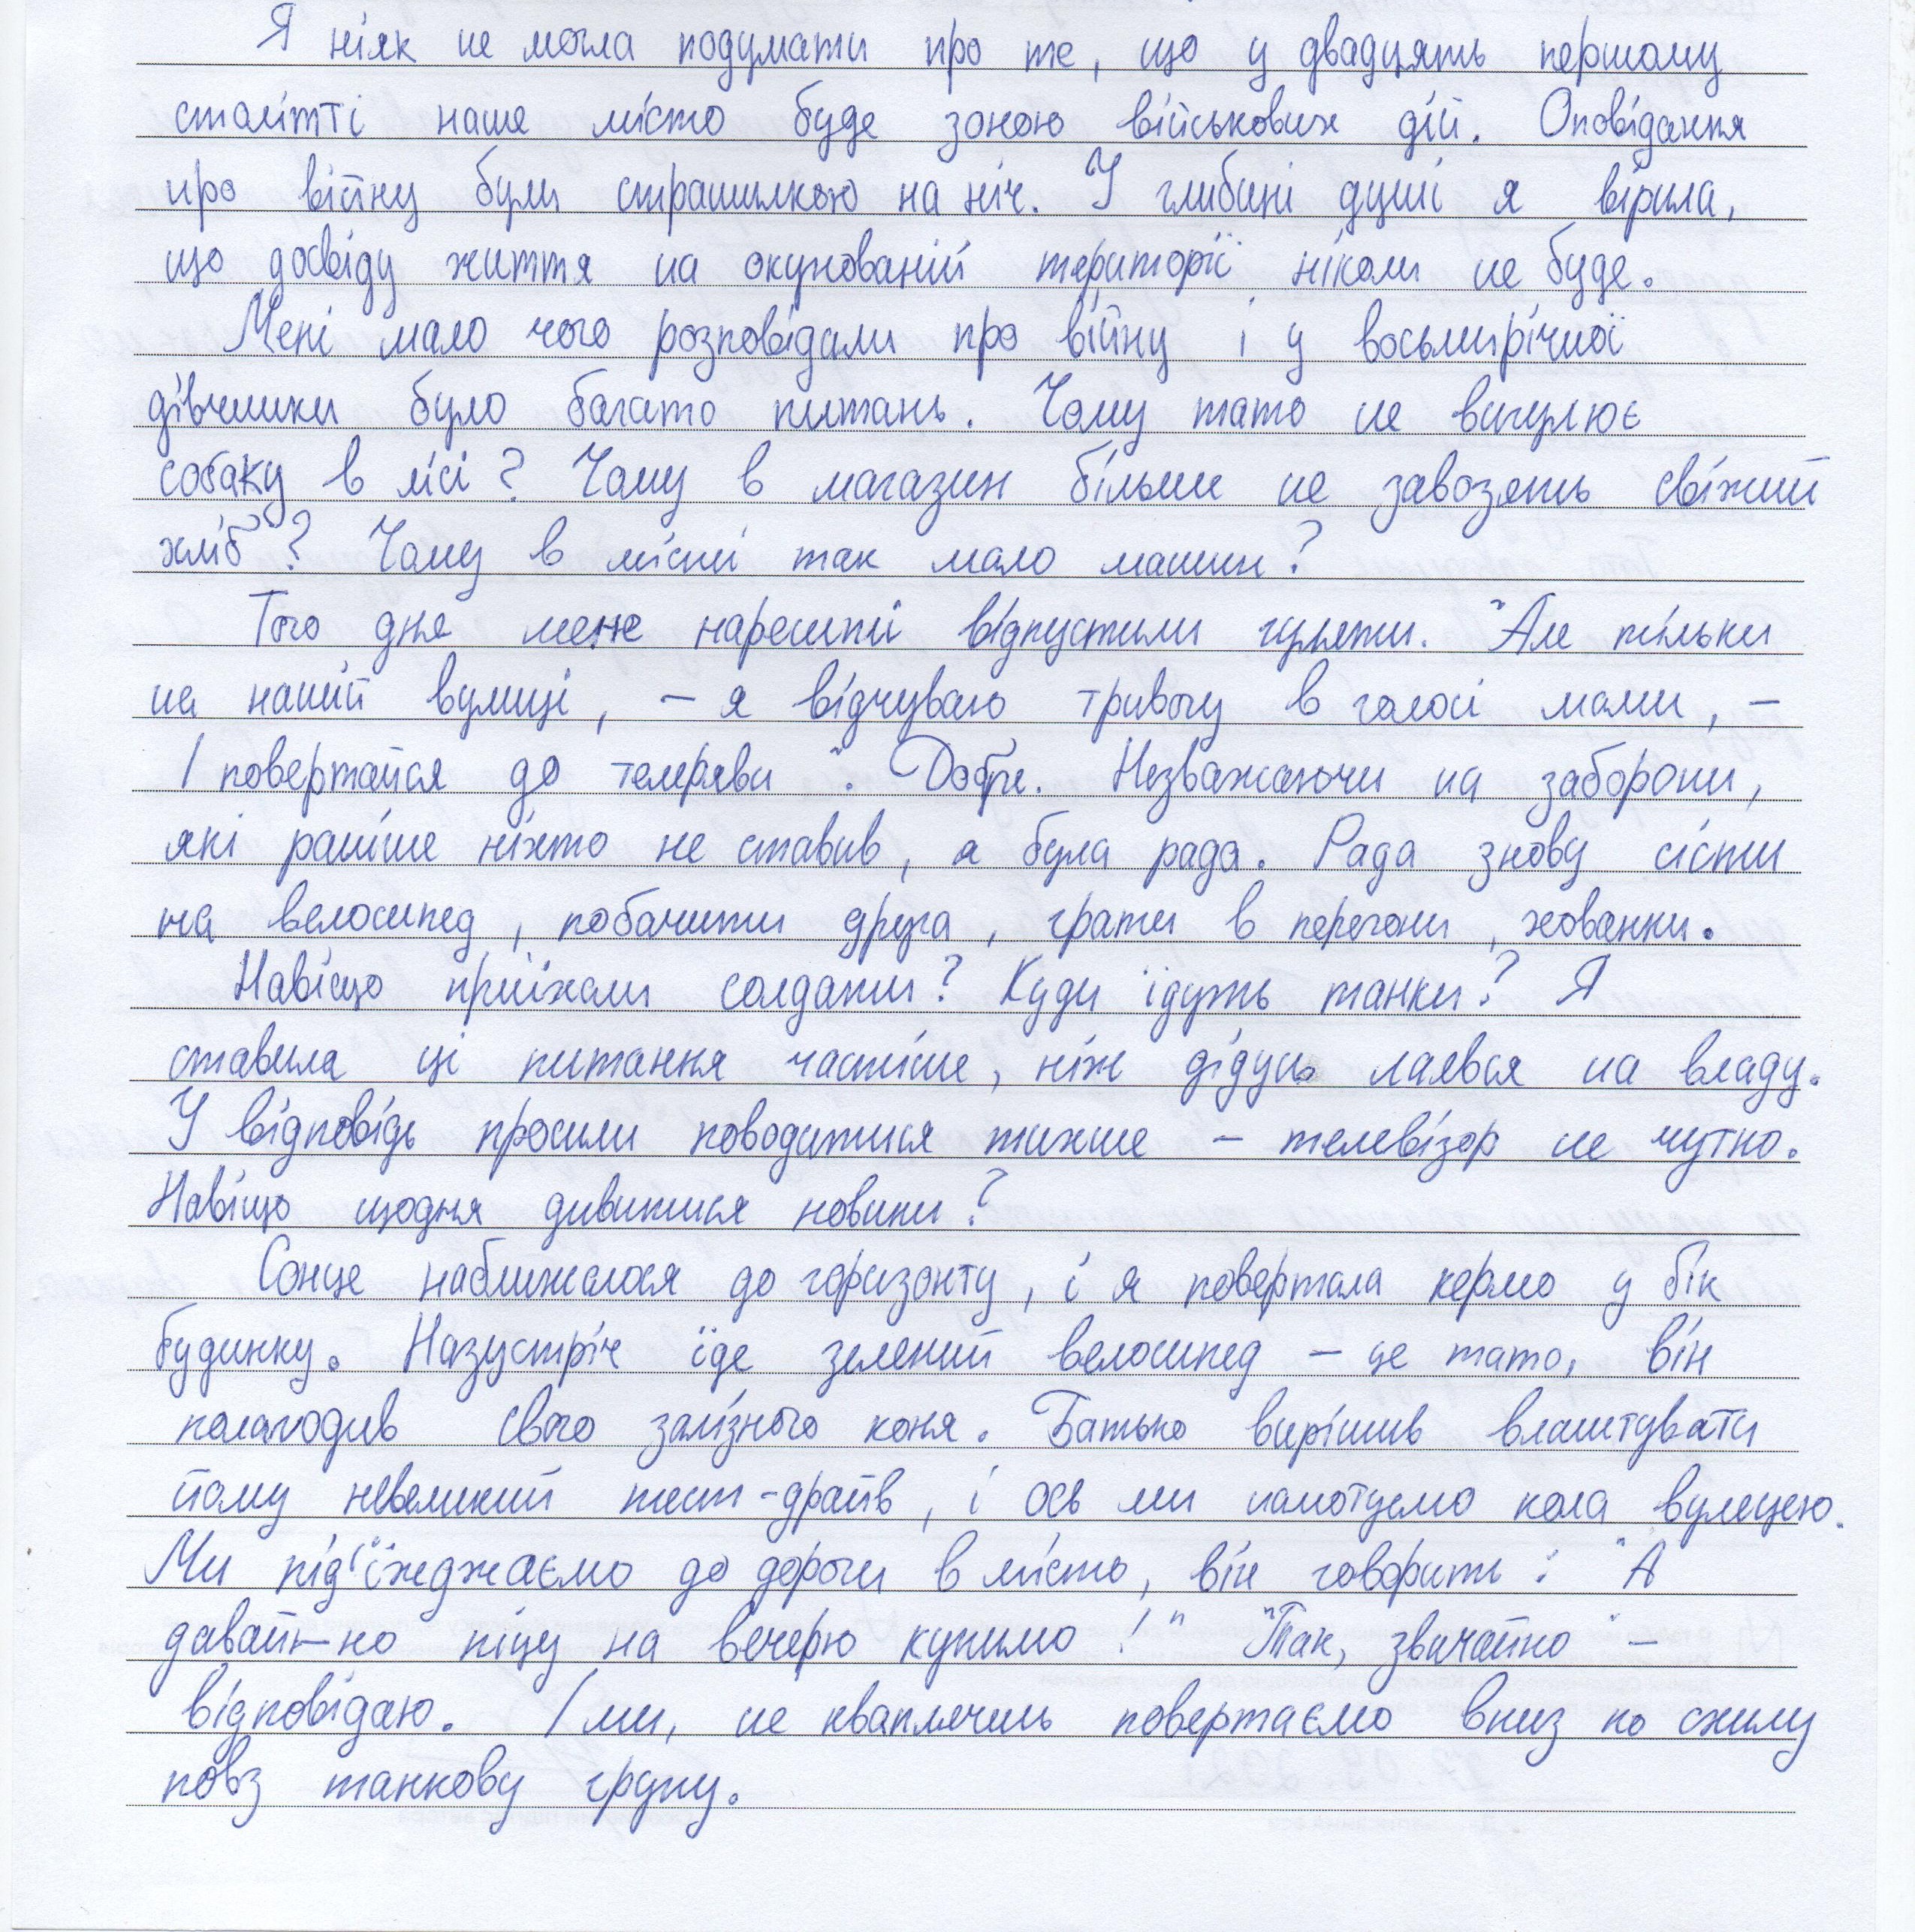 Я ніяк не могла подумати про те, що у двадцять першому
столітті наше місто буде зоною військових дій. Оповідання
про війну були страшилкою на ніч. У глибині душі я вірила,
що досвіду життя на окупованій території ніколи не буде.
Мені мало чого розповідали про війну і у восьмирічної
дівчинки було багато питань. Чому тато не вигулює
собаку в лісі? Чому в магазин більше не завозять свіжий
хліб? Чому в місті так мало машин?
Того дня мене нарешті відпустили гуляти. "Але тільки
на нашій вулиці, – я відчуваю тривогу в голосі мами, –
І повертайся до темряви". Добре. Незважаючи на заборони,
які раніше ніхто не ставив, я була рада. Рада знову сісти
на велосипед, побачити друга, грати в перегони, хованки.
Навіщо приїхали солдати? Куди їдуть танки? Я
ставила ці питання частіше, ніж дідусь лаявся на владу.
У відповідь просили поводитися тихше – телевізор не чутно.
Навіщо щодня дивитися новини?
Сонце наближалося до горизонту, і я повертала кермо у бік
будинку. Назустріч їде зелений велосипед – це тато, він
полагодив свого залізного коня. Батько вирішив влаштувати
йому невеликий тест-драйв, і ось ми намотуємо кола вулицею.
Ми під'їжджаємо до дороги в місто, він говорить: "А
давай-но піцу на вечерю купимо!" "Так, звичайно" –
відповідаю. І ми, не кваплячись повертаємо вниз по схилу
повз танкову групу.